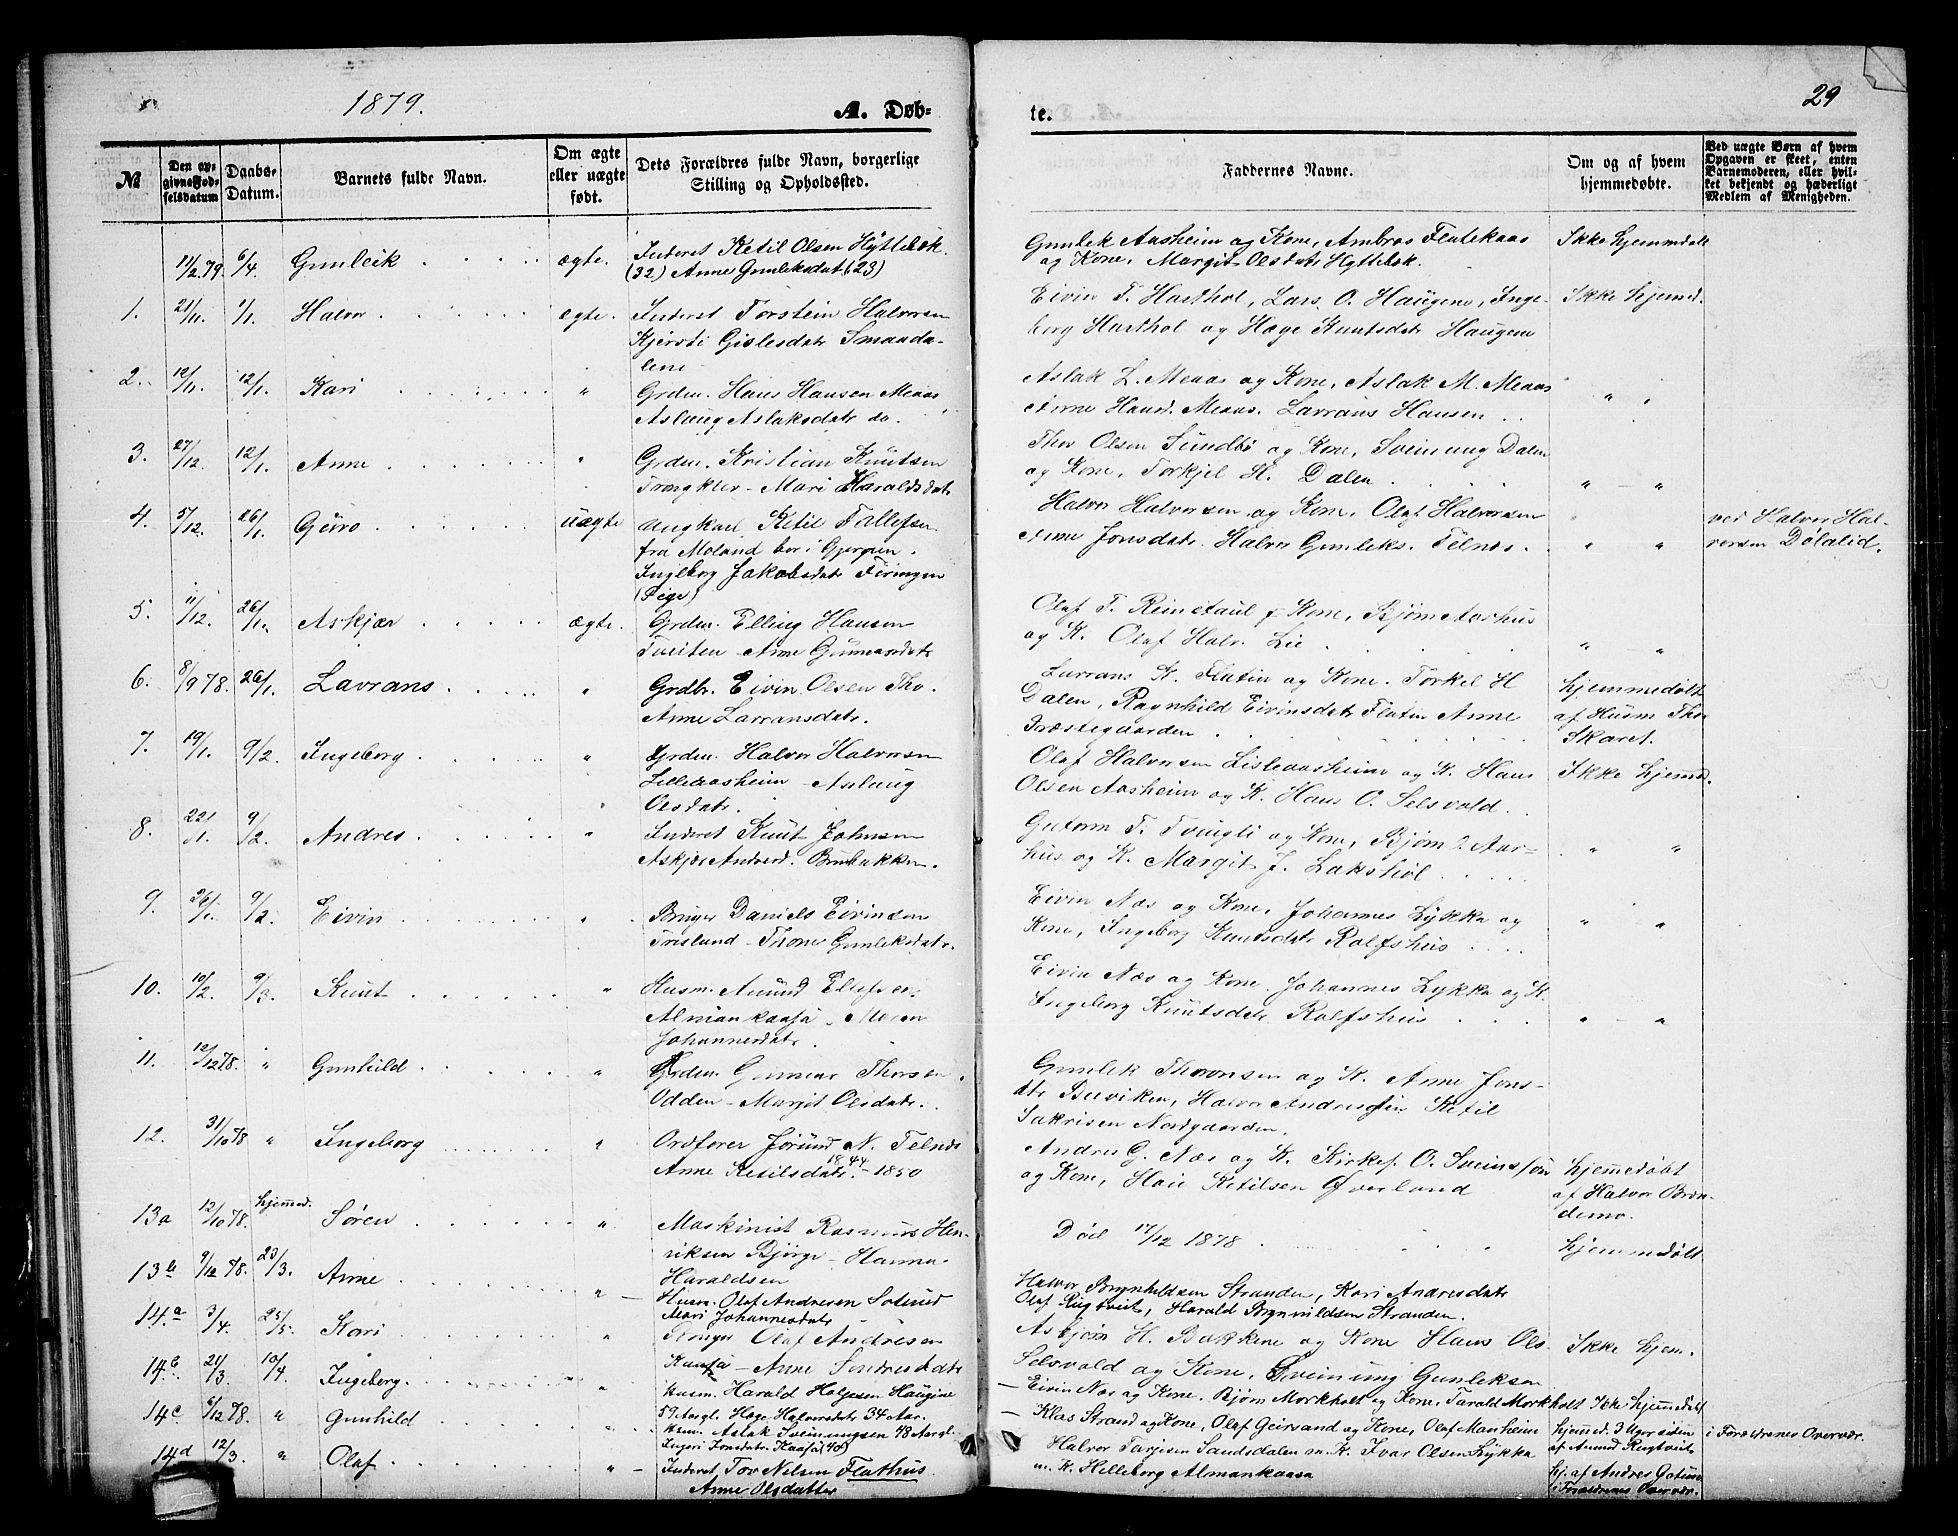 1879.
A. Døb=
te.
29
№
Den op=
givne Fød=
selsdatum
Daabs=
Datum.
Barnets fulde Navn.
Om ægte
eller uægte
født.
Dets Forældres fulde Navn, borgerlige
Stilling og Opholdssted.
Faddernes Navne.
Om og af hvem
hjemmedøbte.
Ved uægte Børn af hvem
Opgaven er skeet, enten
Barnemoderen, eller hvil=
ket bekjendt og hæderligt
Medlem af Menigheden.
11/2 79. 6/4. Gunleik ægte. Inderst Ketil Olsen Hyttebæk
(32) Anne Gunleksdat (23)
Gunlek Aasheim og Kone, Ambros Flatekaas
og Kone, Margit Olsdatr Hyttebæk.
Ikke hjemmdøbt
1. 21/11. 1/1. Halvor ægte. Inderst Torstein Halvorsen
Kjersti Gislesdatr Smaada-
lene
Eivin T. Harthol, Lars O. Haugene, Inge-
berg Harthol og Hæge Knutsdatr Haugene
Ikke hjemd.
2. 12/11. 12/1. Kari " Grden. Hans Hansen Meaas
Aslaug Aslaksdatr do.
Aslak L. Meaas og Kone, Aslak M. Meaas
Anne Hansd. Meaas. Lavrans Hansen
" "
3. 27/12. 12/1. Anne " Grden. Kristian Knutsen
Trongkler - Mari Haraldsdatr
Thor Olsen Sundbø og Kone, Sveinung Dalen
og Kone, Torkjel H. Dalen
" — "
4. 5/12. 26/1. Guro uægte Ungkarl Ketil Tallefsen
fra Moland bor i Gjerpen.
Ingeborg Jakobsdatr
(Pige)
Halvor Halvorsen og Kone, Olaf Halvorsen
Anne Jonsdatr. Halvor Gunleks. Telnes.
" "
ved Halvor Hal-
vorsen Dølalid.
5. 11/12. 26/1. Askjær ægte. Grden. Elling Hansen
Tveiten - Anne Gunnarsdatr
Olaf T. Reinstaul & Kone, Bjørn Aarhus
og K. Olaf Halv. Lie
" "
6. 8/9 78. 26/1. Lavrans " Grdbr. Eivin Olsen Tho.
Anne Lavransdatr.
Lavrans K. Flatin og Kone. Torkel H
Dalen, Ragnhild Eivinsdatr Flatin Anne
Præstegaarden
hjemmedøbt
af Husm Thor
Skaret.
7. 19/1. 9/2. Ingeborg " Grden. Halvor Halvorsen
Lilleaasheim - Aslaug
Olsdatr.
Olaf Halvorsen Lisleaasheim og K. Hans
Olsen Aasheim og K. Hans O. Selsvold.
Ikke hjemd.
8. 22/1. 9/2. Andres " Inderst Knut Johnsen
Askjær Andresd. Brubakken.
Gutorm T. Tveigli og Kone, Bjørn O. Aar-
hus og K. Margit J. Lakshøl
" "
9. 26/1. 9/2. Eivin " Bruger Daniels Eivinsen
Trisland - Thone Gunleksdatr.
Eivin Næs og Kone, Johannes Lykka og
Kone, Ingeborg Knutsdatr Rolfshus
" "
10. 10/2. 9/3. Knut " Husm. Amund Elefsen
Almankaasa - Maren
Johannesdatr.
Eivin Næs og Kone. Johannes Lykka og K.
Ingeborg Knutsdatr Rolfshus
" - "
11. 12/12 78. " Gunhild " Grden. Gunnar Thorsen
Odden - Margit Olsdatr.
Gunlek Thoresen og K. Anne Jons-
datr Buviken, Halvor Ketil
Sakrisen Nordgaarden.
12. 31/10 78 " Ingeborg " Ordfører Jørund N. Telnæs
1844
Anne Ketilsdatr. - 1850
Andres G. Næs og K. Kirkes. O. Sveinssøn
og Kone, Haie Ketilsen Øverland
hjemedøbt
af Halvor Bræn-
demo.
13a 12/10 78. hjemmed. Søren " Maskinist Rasmus Hen-
riksen Bjørge - Hanna
Haraldsen
Død 17/12 1878
hjemmdøbt
13b 9/12 78. 23/3. Anne " — Husm. Olaf Andresen Sotund
Mari Johannesdatr
Halvor Brynhildsen Stranden, Kari Andresdatr
Olaf Rugtveit, Harald Brynildsen Stranden.
14.a 3/4. 25/5. Kari " Olaf Andresen
Kaasa - Anne Sondresdatr
Asbjørn H. Bakkene og Kone Hans Ols.
Selsvold og Kone, Sveinung Gunleksen
Ikke hjem.
14b. 21/3. 10/4. Ingeborg. " Husm. Harald Holjesen Haugene
59 Aargl. Hæge Halvorsdatr 34 Aar.
— Eivin Næs og Kone, Bjørn Morkhølt og Kone, Tarald Morkhølt
Ikke hjemedøbt
14c 6/12 78. " Gunhild " Husm. Aslak Sveinungsen 48 Aargl.
Ingeri Jonsdatr. Kaasa (40)
— Klas Strand og Kone, Olaf Geirsand og Kone, Olaf Manheim
hjemmd. 3 Uger siden
af Amund Rugtveit
i Forældrenes Overvær.
14d 12/3. " Olaf " — Inderst Tov Nilsen Flathus.
Anne Olsdatter
Halvor Tarjesen Sandsdalen m. K. Ivar Olsen Lykka
m. K. Helleborg Almankaasa
hj. af Andres Gotun
i Forældrenes Overvær.